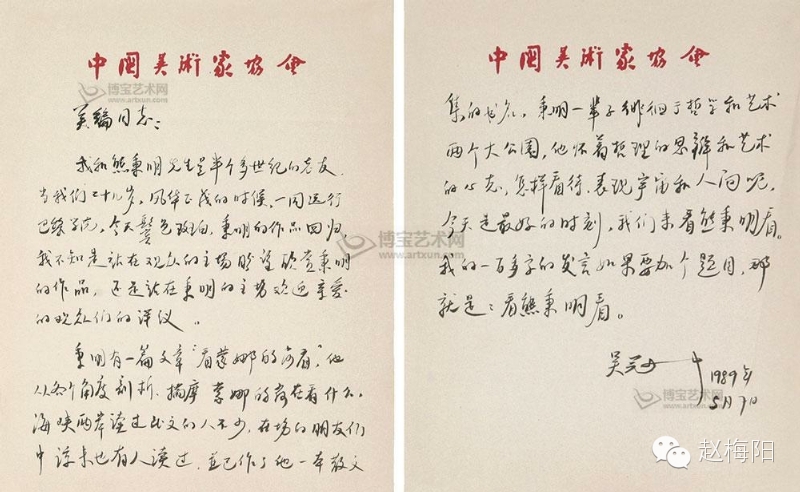 中国美術家协会
美编同志：
我和熊秉明先生是半个多世纪的老友，
当我们二十几岁，风华正茂的时候，一同远行
巴黎学艺。今天鬓色斑白，秉明的作品回归，
我不知是站在观众的立场盼望欣赏秉明
的作品，还是站在秉明的立场欢迎亲爱
的观众们的评仪。
秉明有一篇文章“看蒙娜的海看”，他
从各个角度剖析、揣摩蒙娜的海在看什么，
海峡两岸读过此文的人不少，在场的朋友们
中谅来也有人读过，并已作了他一本散文
中国美術家协会
集的书名。秉明一辈子徘徊于哲学和艺术
两个大公园，他怀着哲理的思辨和艺术
的心态，怎样看待、表现宇宙和人间呢，
今天是最好的时刻，我们来看熊秉明看。
我的一百多字的发言如果要加个题目，那
就是：看熊秉明看。
吴冠中
1989年
5月7日
博宝艺术网
www.artxun.com
博宝艺术网
www.artxun.com
博宝艺术网
www.artxun.com
赵梅阳